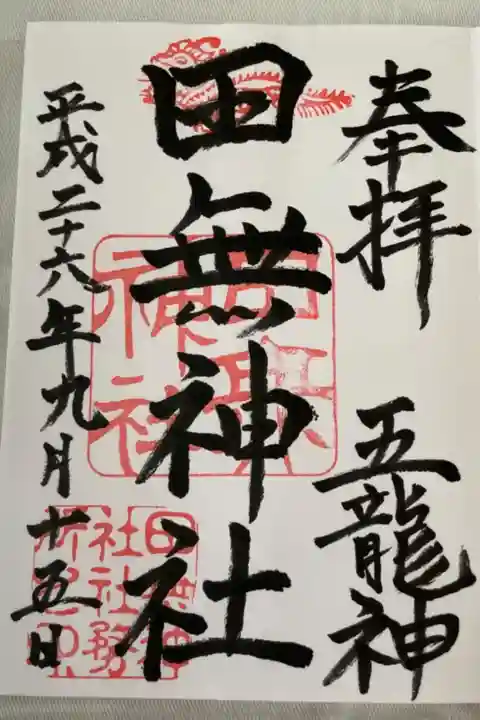 奉拝 五龍神
田無神社
平成二十六年九月十五日
田無神社
田無神社社務所之印